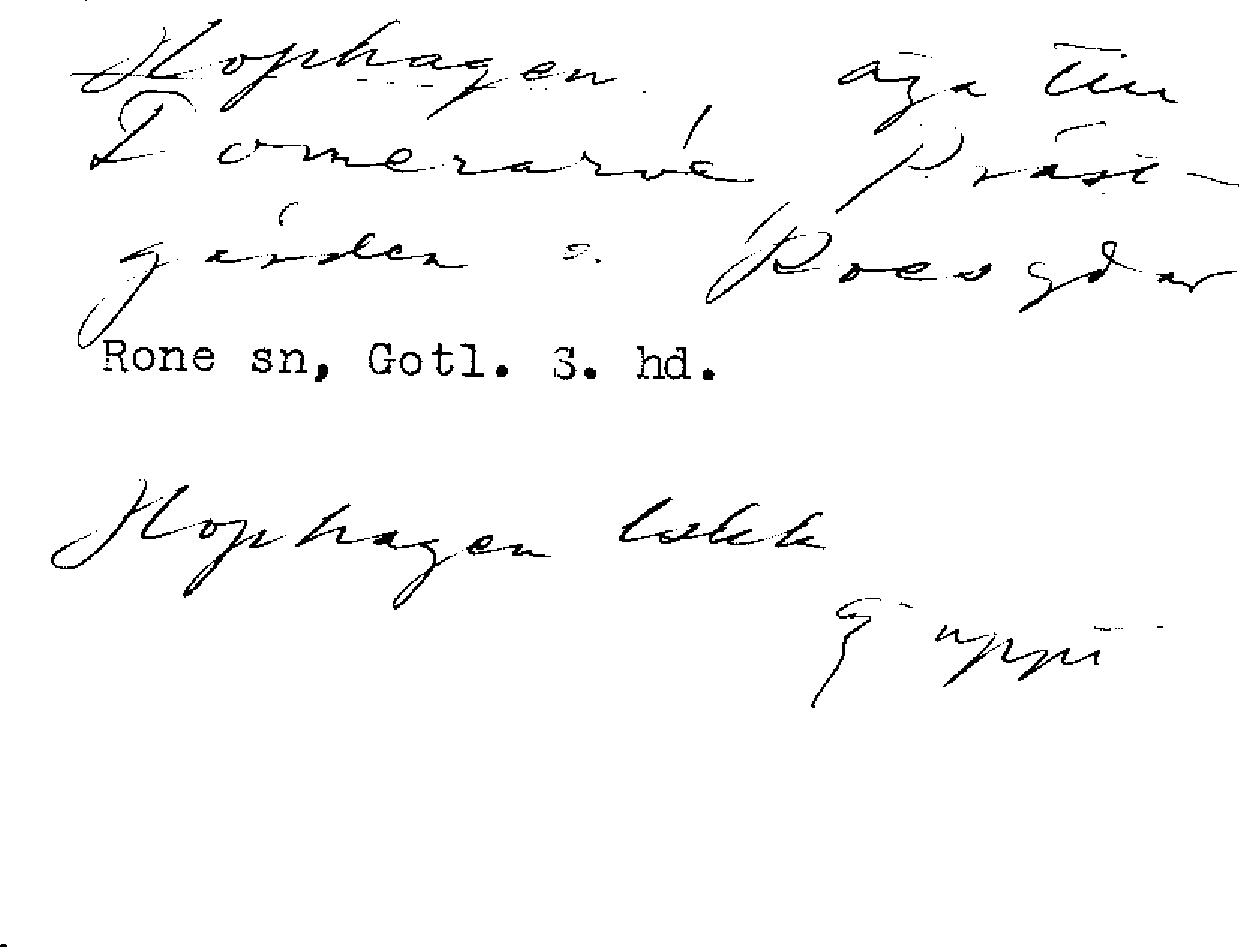 Hophagen äga till
Tomerarve Präst-
gården o. Roes gdar
Rone sn, Gotl. S. hd.
Hophagen
Ej uppt